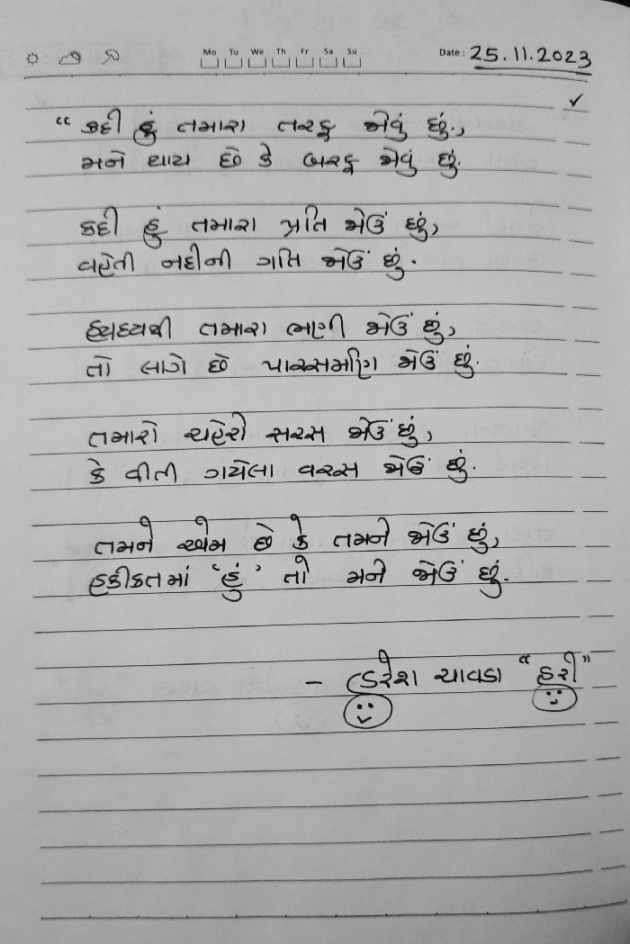 Mo Tu We Th Fr Sa Su Date: 25.11.2023
“ કદી હું તમારા તરફ જોવું છું.,
મને થાય છે કે બરફ જોવું છું.
કદી હું તમારા પ્રતિ જોઉં છું,
વહેતી નદીની ગતિ જોઉં છું.
હ્યદયથી તમારા ભણી જોઉં છું,
તો લાગે છે પારસમણિ જોઉં છું.
તમારો ચહેરો સરસ જોઉં છું,
કે વીતી ગયેલા વરસ જોઉં છું.
તમને એમ છે કે તમને જોઉં છું,
હકીકતમાં ‘હું’ તો મને જોઉં છું.
- હરેશ ચાવડા “હરી”